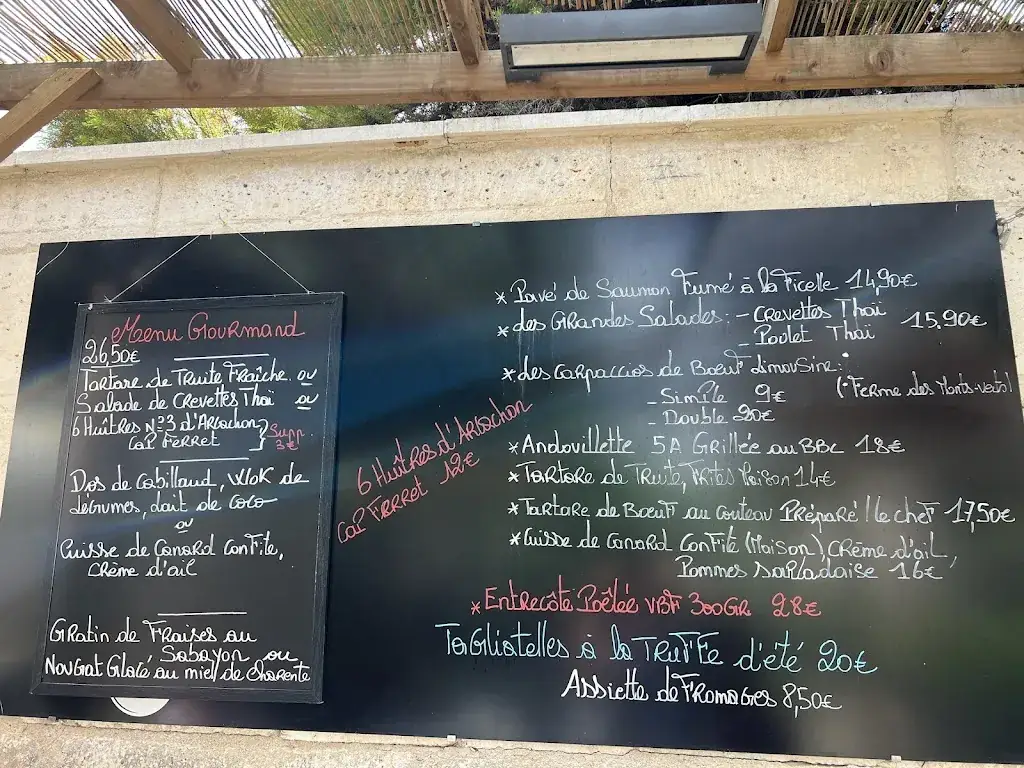 Menu Gourmand
26,50€
Tartare de Truite Fraîche ou
Salade de Crevettes Thaï ou
6 Huîtres N°3 d'Arcachon
Cap Ferret
Supp.
3€
Dos de Cabillaud, Wok de
légumes, lait de coco
ou
Cuisse de Canard Confite,
Crème d'ail
Gratin de Fraises au
Sabayon ou
Nougat Glacé au miel de Charente
6 Huîtres d'Arcachon
Cap Ferret 12€
* Pavé de Saumon Fumé à la Ficelle 14,90€
* des Grandes Salades: - Crevettes Thaï
- Poulet Thaï
15,90€
* des Carpaccios de Bœuf Limousine:
- Simple 9€
- Double 20€
(*Ferme des Monts-verts)
* Andouillette 5A Grillée au BBC 18€
* Tartare de Truite, Frites Maison 14€
* Tartare de Bœuf au Couteau Préparé / le chef 17,50€
* Cuisse de Canard Confite (Maison), Crème d'ail,
Pommes Sarladaise 16€
* Entrecôte Poêlée VBF 300Gr 28€
Tagliatelles à la Truffe d'été 20€
Assiette de Fromages 8,50€